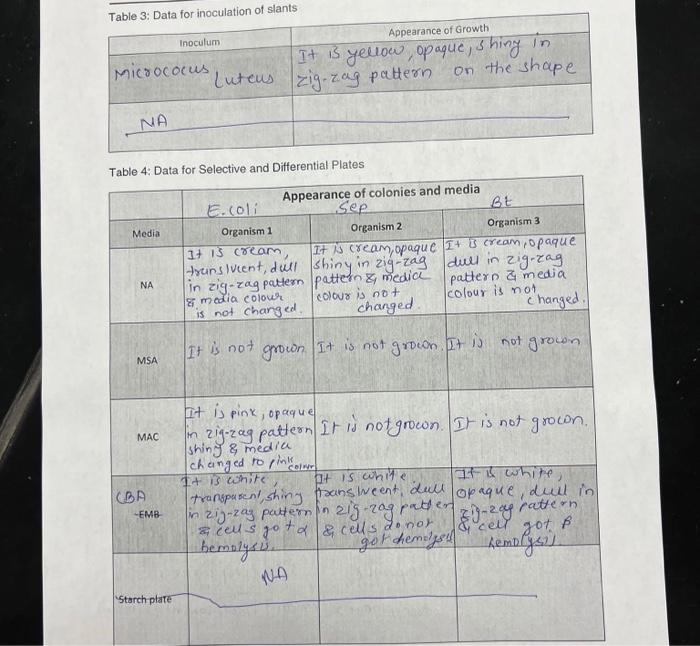 Table 3: Data for inoculation of slants
Inoculum
Appearance of Growth
Micrococus Luteus
It is yellow, opaque, shing in
zig-zag pattern on the shape
NA
Table 4: Data for Selective and Differential Plates
Appearance of colonies and media
E.coli
Sep
Bt
Media
Organism 1
Organism 2
Organism 3
NA
It is cream,
translucent, dull
in zig-zag pattern
& media colour
is not changed.
It is cream, opaque
shiny in zig-zag
pattern & media
colour is not
changed.
It is cream, opaque
dull in zig-zag
pattern & media
colour is not
changed.
MSA
It is not grown
It is not grown.
It is not grown
MAC
It is pink, opaque
in zig-zag pattern
shing & media
changed to pink colour
It is not grown.
It is not grown.
CBA
EMB
It is white,
transparent, shing
in zig-zag pattern
& cells got α
hemolysis.
It is white,
translucent, dull
in zig-zag pattern
& cells do not
got hemolysis
It is white,
opaque, dull in
zig-zag pattern
& cell got β
hemolysis.
Starch plate
NA